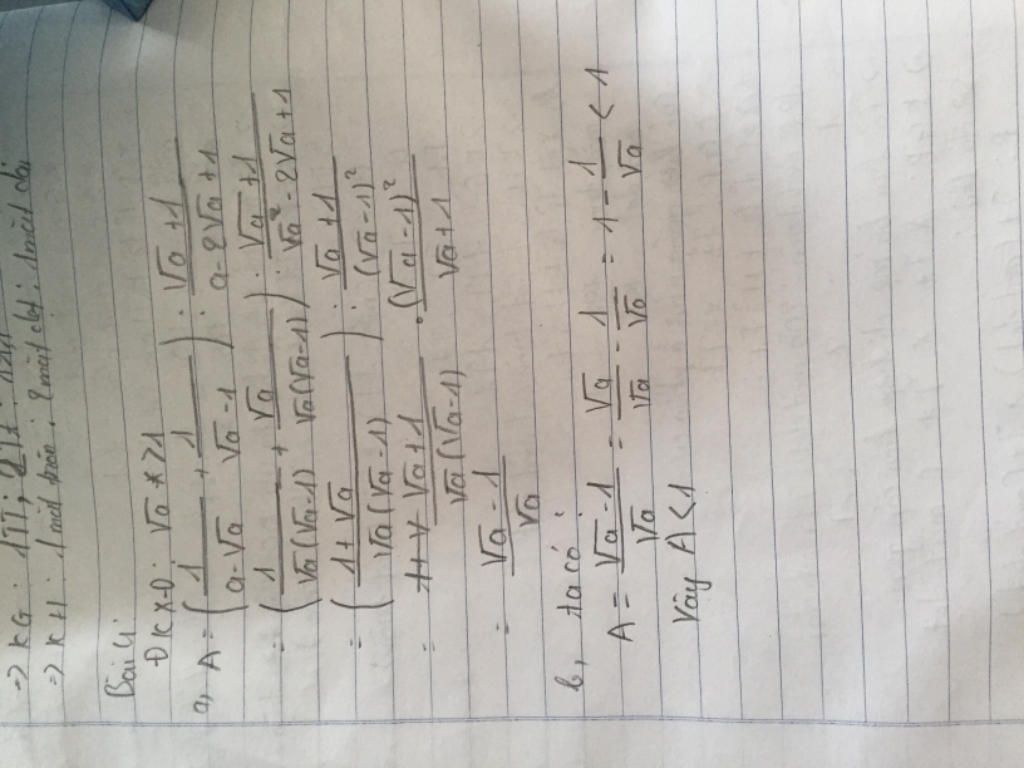 => KG: 1TT;
=> KH: 1 mắt tròn; 2 mắt dẹt: 1 mắt dài
Bài 4:
ĐKXĐ: √a * > 1
a, A = (1/(a-√a) + 1/(√a-1)) : (√a+1)/(a-2√a+1)
= (1/(√a(√a-1)) + √a/(√a(√a-1))) : (√a+1)/(√a² - 2√a+1)
= ((1+√a)/(√a(√a-1))) : (√a+1)/(√a-1)²
= (√a+1)/(√a(√a-1)) . (√a-1)²/(√a+1)
= (√a-1)/√a
b, ta có:
A = (√a-1)/√a = √a/√a - 1/√a = 1 - 1/√a < 1
Vậy A < 1